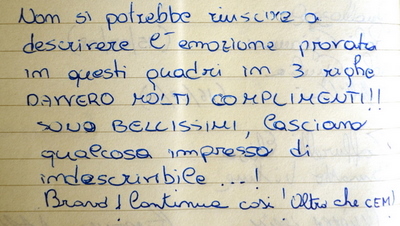 Non si potrebbe riuscire a
descrivere l'emozione provata
in questi quadri in 3 righe
DAVVERO MOLTI COMPLIMENTI!!
SONO BELLISSIMI, lasciano
qualcosa impresso di
indescrivibile...!
Continua così! Oltre che CEM)